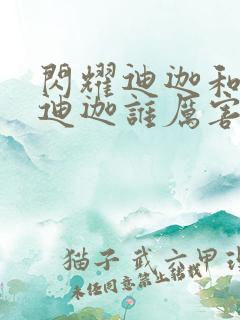 閃耀迪迦和
迪迦誰厲害
猫子 武六甲
未任同意禁止转载